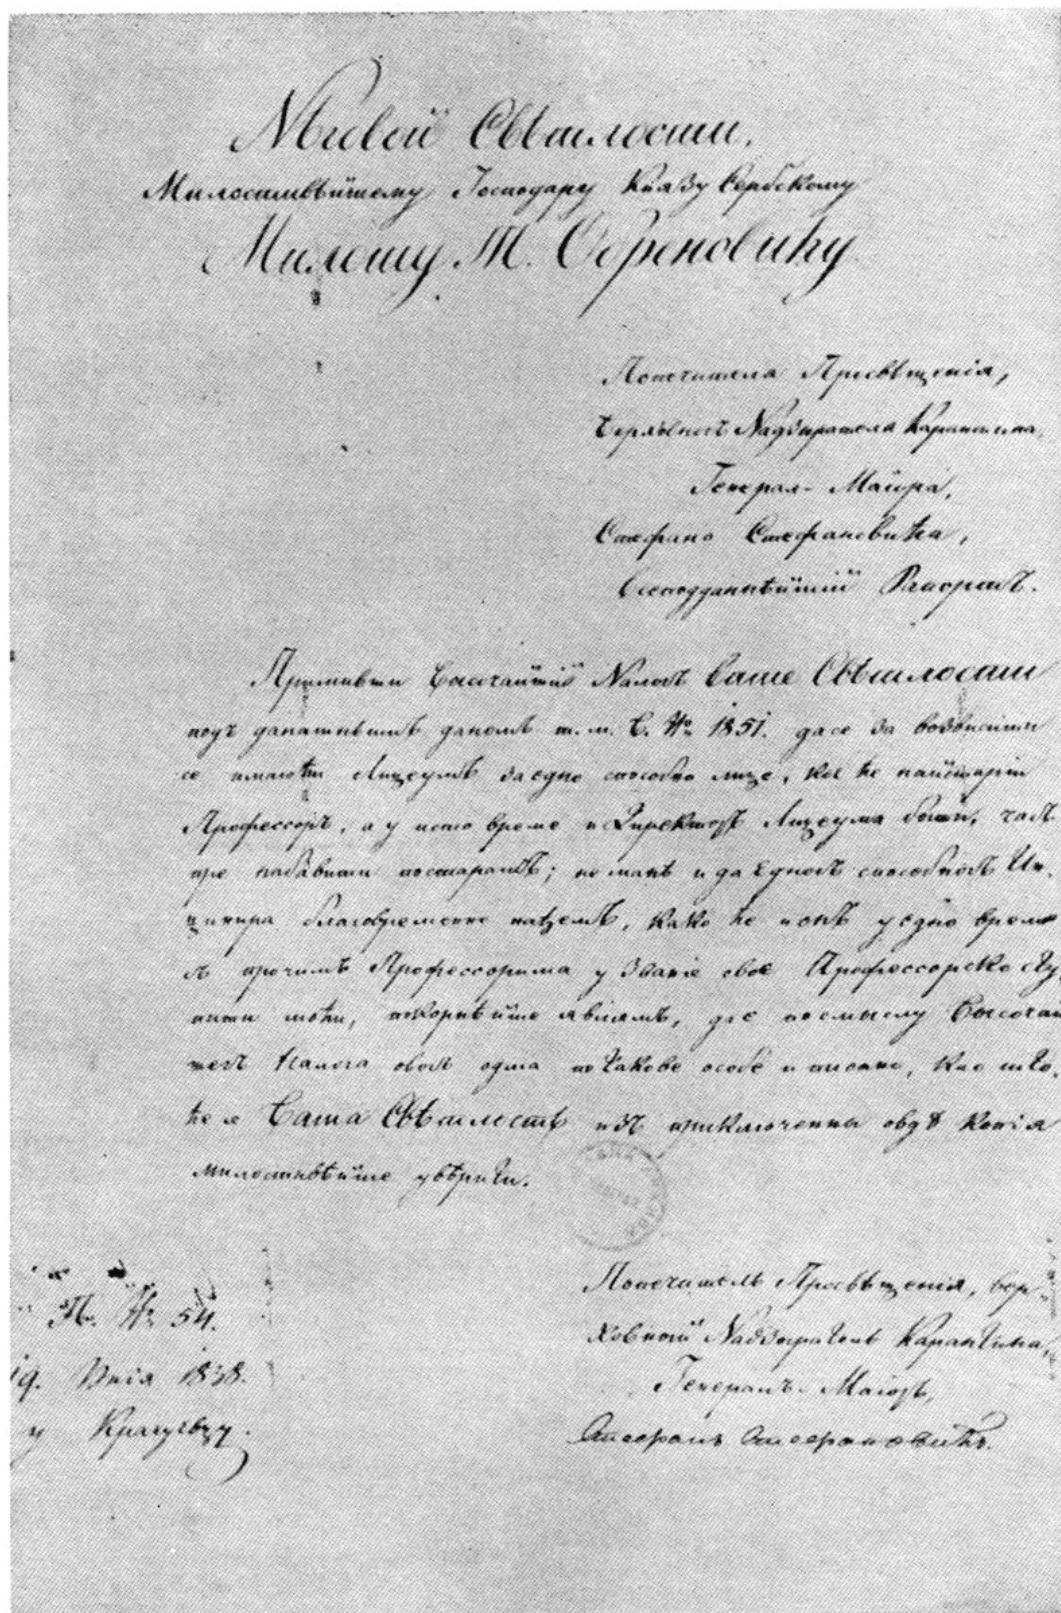 Нѣговой Свѣтлости,
Милостивѣйшему Господару Князу Сербскому
Милошу Т. Обреновићу
Попечителя Просвѣщенія,
Верховногъ Надзирателя Карантина,
Генерал-Маіора,
Стефана Стефановића,
Всеподданнѣйшій Рапортъ.
Примивши Высочайшій Налогъ Ваше Свѣтлости
подъ данашньимъ даномъ т. м. В. № 1851. да се за возвисити
се имаюћи Лицеумъ за едно способно лице, кое ће найстарій
Профессоръ, а у исто време и Директоръ Лицеума быти, чимъ
пре набавити постарамъ; но манѣ и да едногъ способногъ Ин-
џинира благовременно нађемъ, како ће и онъ у едно време
съ прочимъ Профессорима у званіе свое Профессорско сту-
пити моћи, покорнѣйше являмъ, да є по смыслу Высочай-
шегъ Налога овогъ одма по такове особе и писано, као што
ће се Ваша Свѣтлость изъ приключены овдѣ копія
милостивѣйше увѣрити.
П. № 54.
19. Юнія 1838.
у Крагуевцу.
Попечитель Просвѣщенія, вер-
ховный Надзиратель Карантина,
Генералъ-Маіоръ,
Стефанъ Стефановићъ.